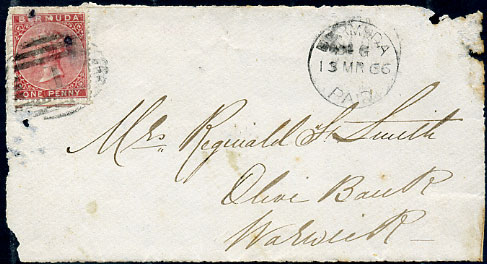 BERMUDA
ONE PENNY
BERMUDA
13 MR 66
PAID
Mrs. Reginald S. Smith
Olive Bank
Warwick